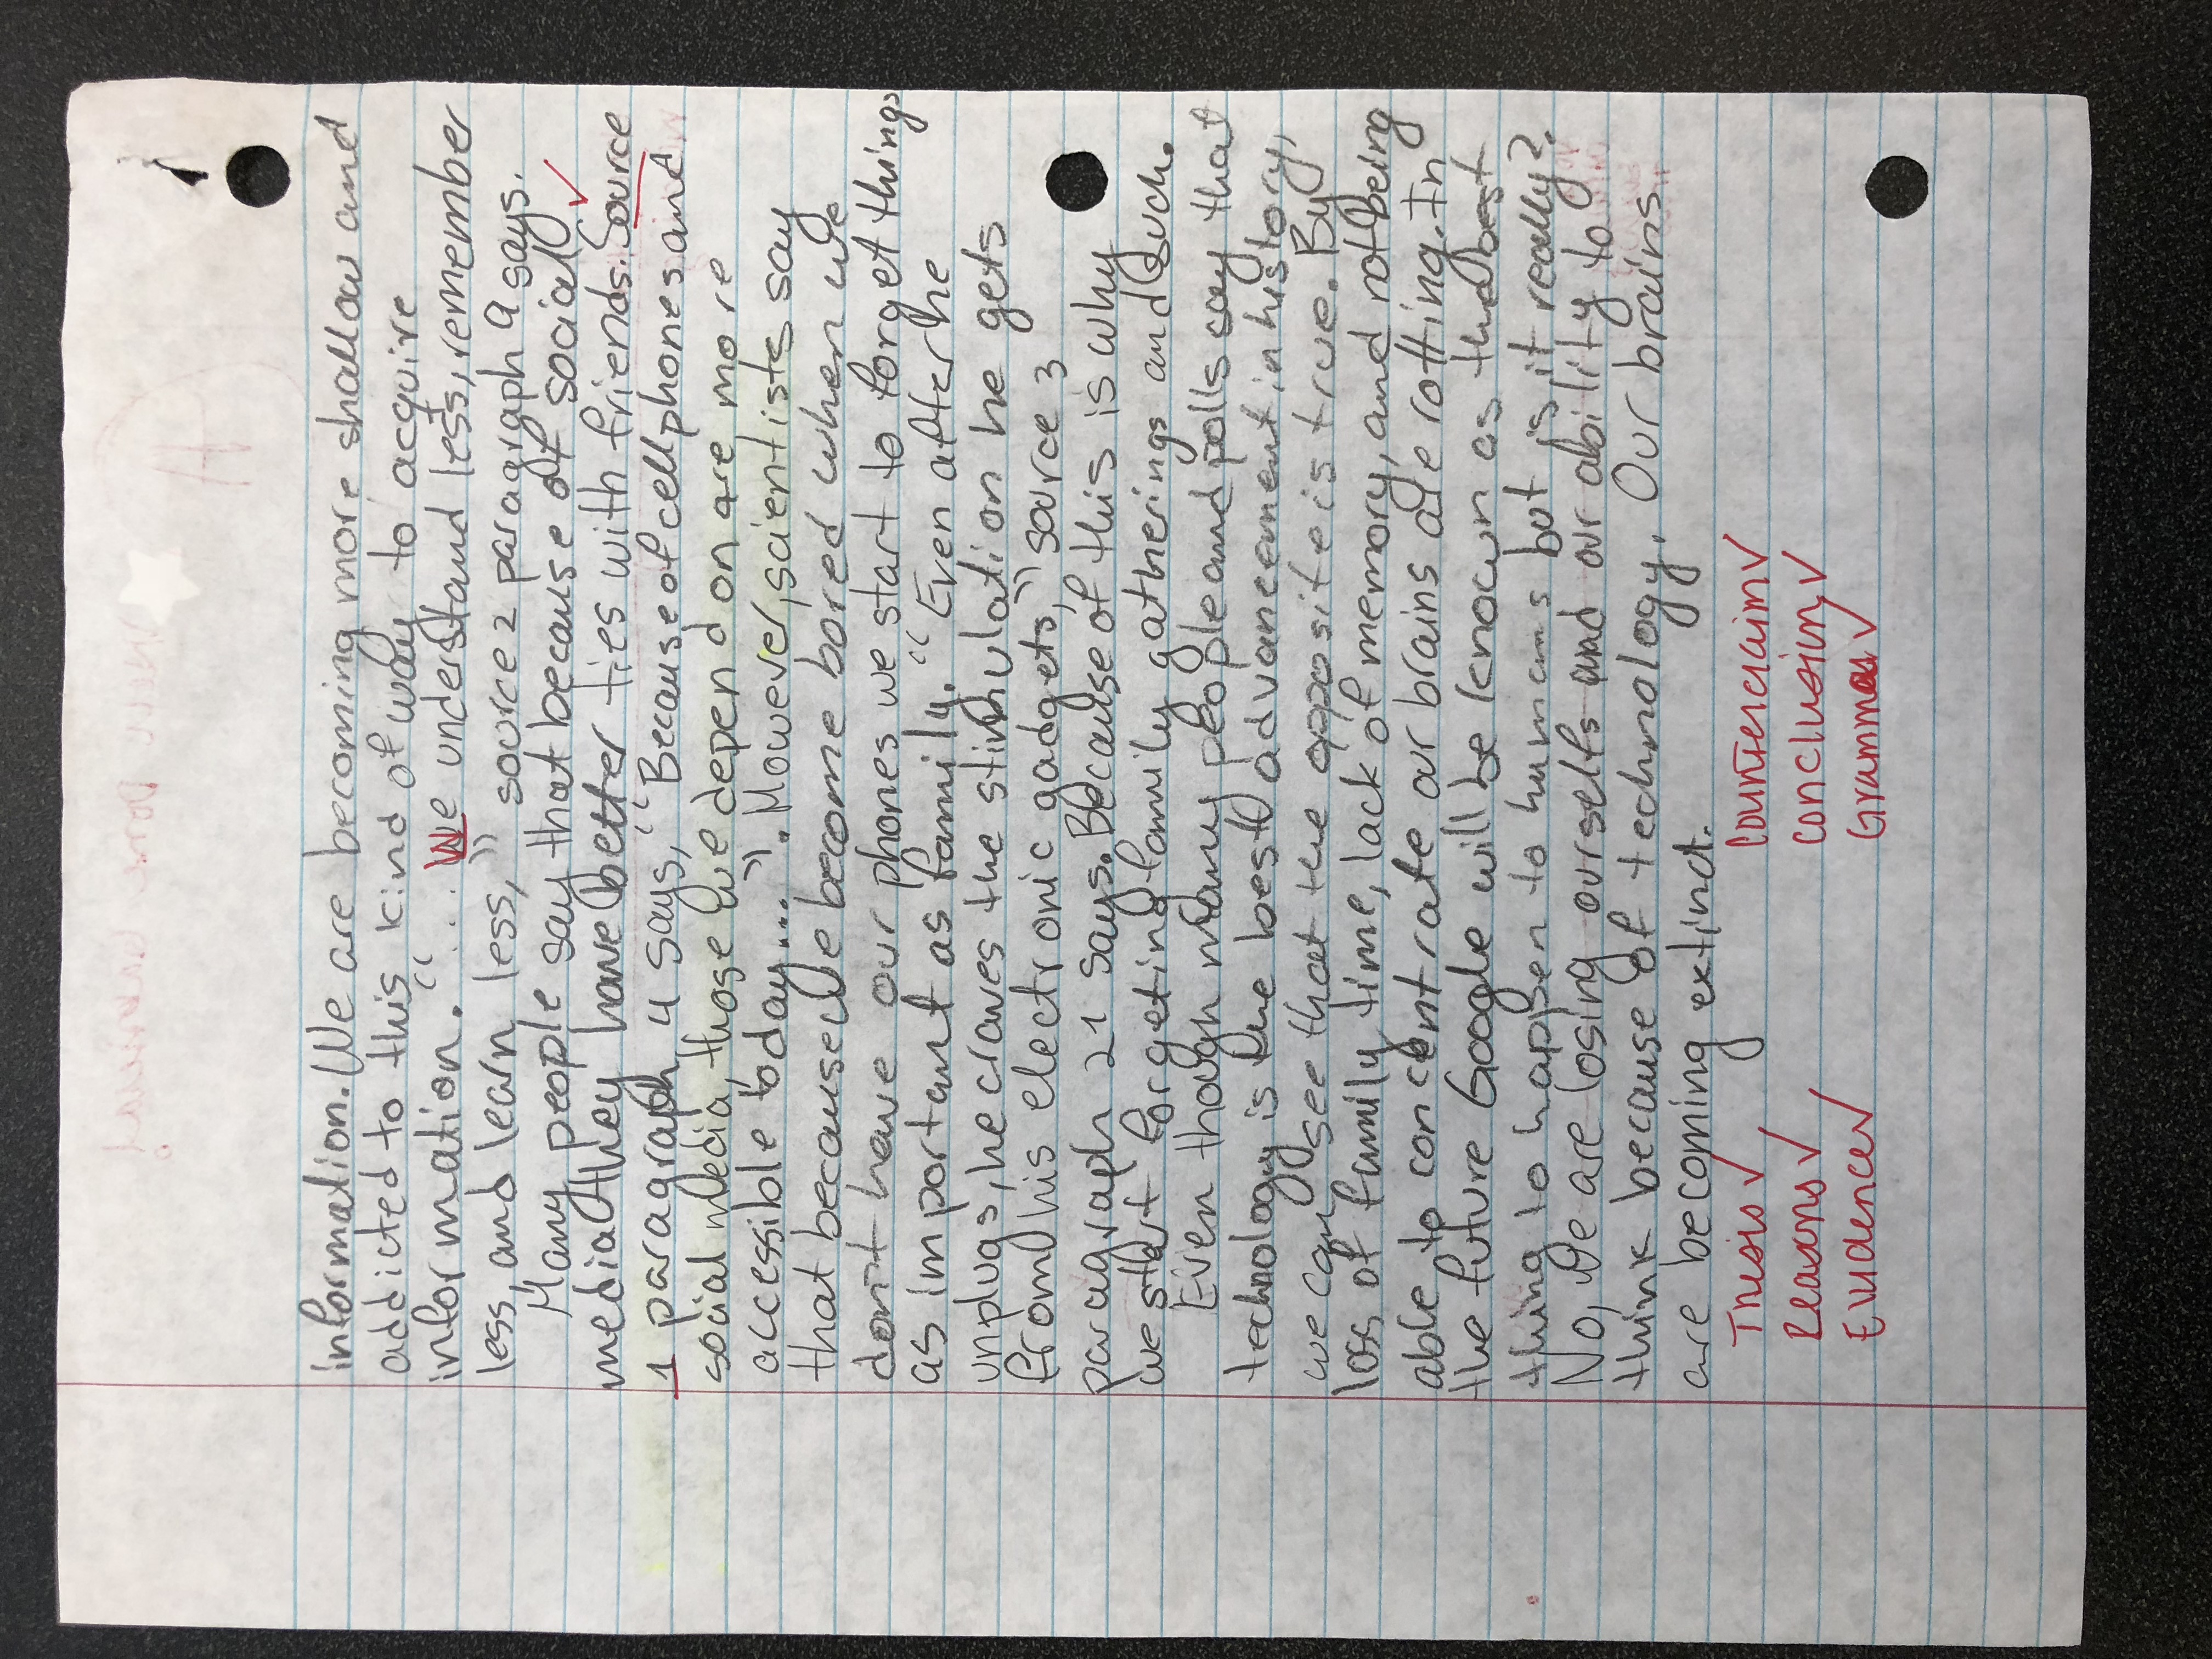 information. We are becoming more shallow and
addicted to this kind of way to acquire
information. "... We understand less, remember
less, and learn less," source 2 paragraph 9 says.
Many people say that because of social
media they have better ties with friends. Source
1 paragraph 4 says, "Because of cellphones and
social media, those we depend on are more
accessible today....". However, scientists say
that because we become bored when we
don't have our phones we start to forget things
as important as family. "Even after he
unplugs, he craves the stimulation he gets
from his electronic gadgets," source 3
paragraph 21 says. Because of this is why
we start forgeting family gatherings and such.
Even though many people and polls say that
technology is the best advancement in history,
we can see that the opposite is true. By
loss of family time, lack of memory, and not being
able to concentrate our brains are rotting. In
the future Google will be known as the best
thing to happen to humans but is it really?
No, we are losing ourselfs and our ability to
think because of technology. Our brains
are becoming extinct.
Thesis ✓ Counterclaim ✓
Reasons ✓ Conclusion ✓
Evidence ✓ Grammar ✓